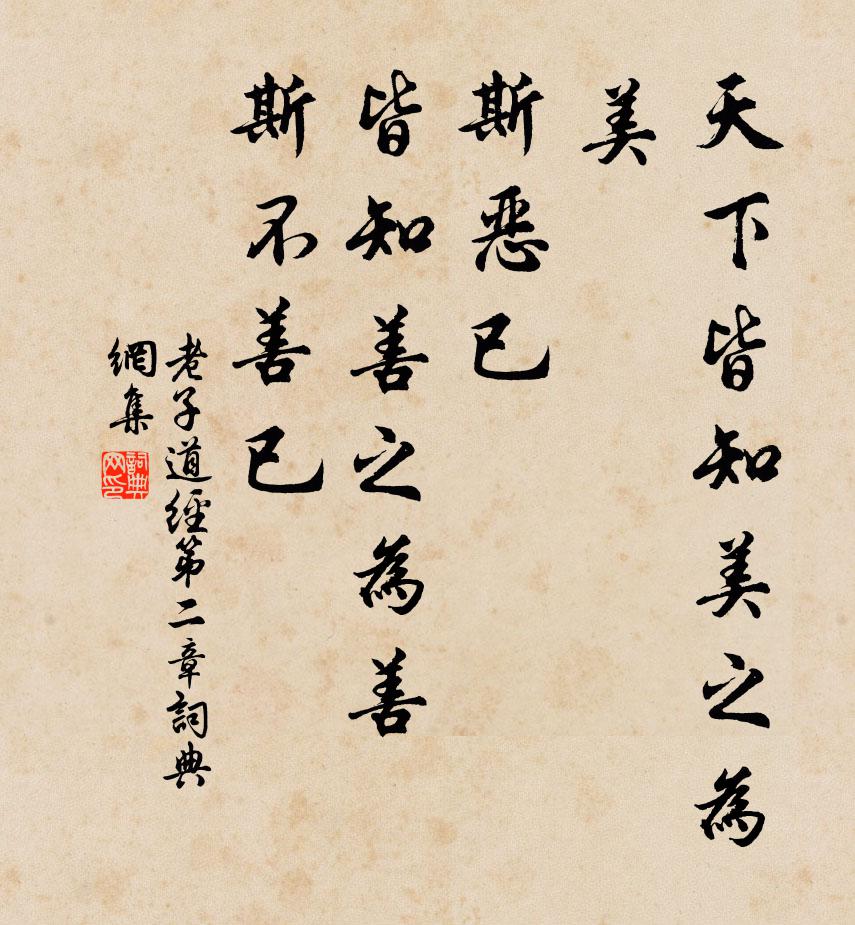 天下皆知美之為
美
斯惡已
皆知善之為善
斯不善已
老子道經第二章詞典
網集
詞典
网印